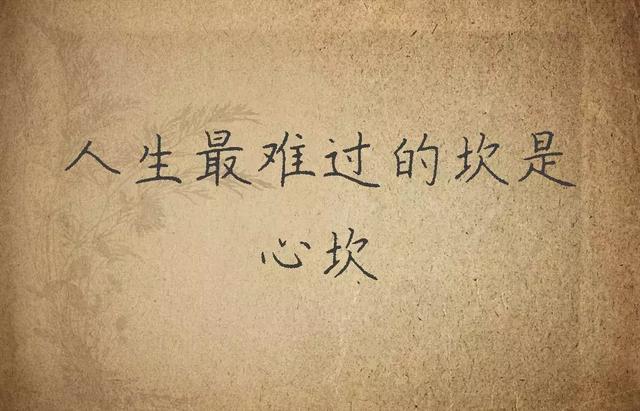 人生最难过的坎是
心坎